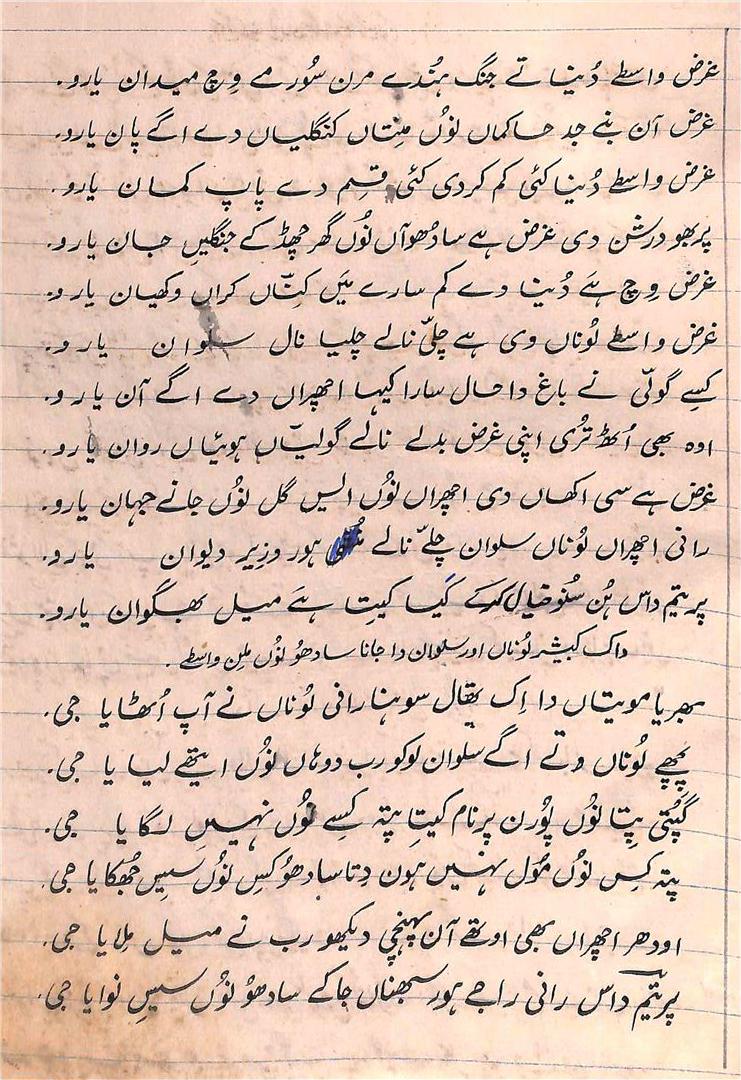 غرض واسطے دُنیا تے جنگ ہُندے مرن سُورمے وِچ میدان یارو۔
غرض آن بنے جد حاکماں نوُں مِنتاں کنگلیاں دے اگے پان یارو۔
غرض واسطے دُنیا کئی کم کردی کئی قسِم دے پاپ کمان یارو۔
پربھو درشن دی غرض ہے سادھوآں نوُں گھر چھڈ کے جنگلیں جان یارو۔
غرض وِچ ہےَ دُنیا دے کم سارے مَیں کِتّاں کراں وکھیان یارو۔
غرض واسطے لُوناں وی ہے چلّی نالے چلیا نال سلوان یارو۔
کسِے گولّی نے باغ دا حال سارا کہیا اچھراں دے اگے آن یارو۔
اوہ بھی اُٹھ تُرمی اپنی غرض بدلے نالے گولیّاں ہوئیاں روان یارو۔
غرض ہے سی اکھاں دی اچھراں نوُں ایس گل نوُں جانے جہان یارو۔
رانی اچھراں لوُناں سلوان چلےّ نالے ہور وزیر دیوان یارو۔
پریتم داس ہُن سُنو خیال کرکے کیَا کیتِا ہےَ میل بھگوان یارو۔
داک کبیشر لوُناں اور سلوان دا جانا سادھوُ نوُں مِلن واسطے۔
بھریا موتیاں دا اِک تھال سوہنا رانی لوُناں نے آپ اُٹھایا جی۔
پِچھے لوُناں وتے اگے سلوان لوکو رب دوہاں نوُں ایتھے لیایا جی۔
گپُتی پِتا نوُں پوُرن پرنام کیتِا پتہ کسِے نوُں نہیںِ لگایا جی۔
پتہ کِس نوُں موُل نہیں ہون دِتا سادھوُ کسِ نوُں سیِس جھُکایا جی۔
اودھر اچھراں بھی اوتھے آن پہنچی دیکھو رب نے میل مِلایا جی۔
پریتم داس رانی راجے ہور سبھناں جا کے سادھوُ نوُں سیِس نوایا جی۔